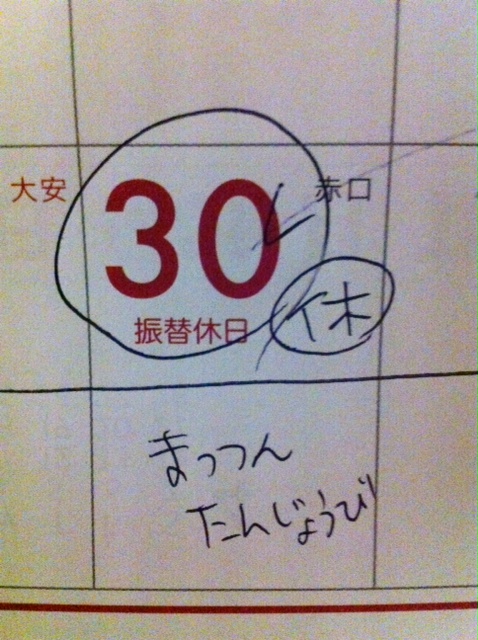 大安
30
赤口
振替休日
休
まっつん
たんじょうび